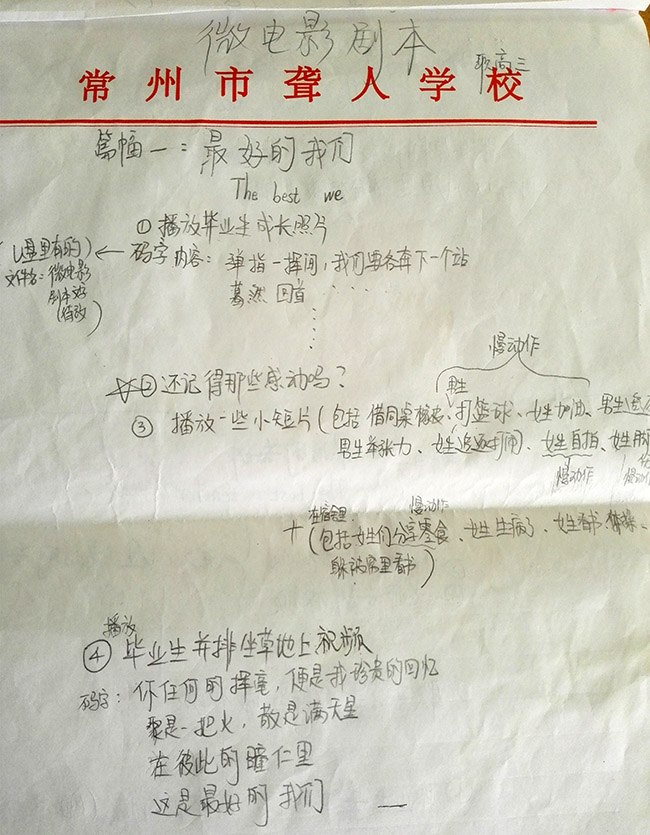 微电影剧本
职高三
常州市聋人学校
篇幅一：最好的我们
The best we
①播放毕业生成长照片
(U盘里有的)←码字内容：弹指一挥间，我们要各奔下一个站
文件名：微电影
剧本
修改)
蓦然回首······
慢动作
②还记得那些感动吗？
男生
③播放一些小短片(包括借同桌橡皮、打篮球、女生加油、男生追
男生举张力、女生追逐打闹、女生自拍、女生
慢动作
慢动作
在宿舍里
慢动作
+(包括女生们分享零食、女生生病了、女生看书
躲被窝里看书)
播放
④毕业生并排坐草地上视频
码字：你任何的挥毫，便是我珍贵的回忆
聚是一把火，散是满天星
在彼此的瞳仁里
这是最好的我们 —